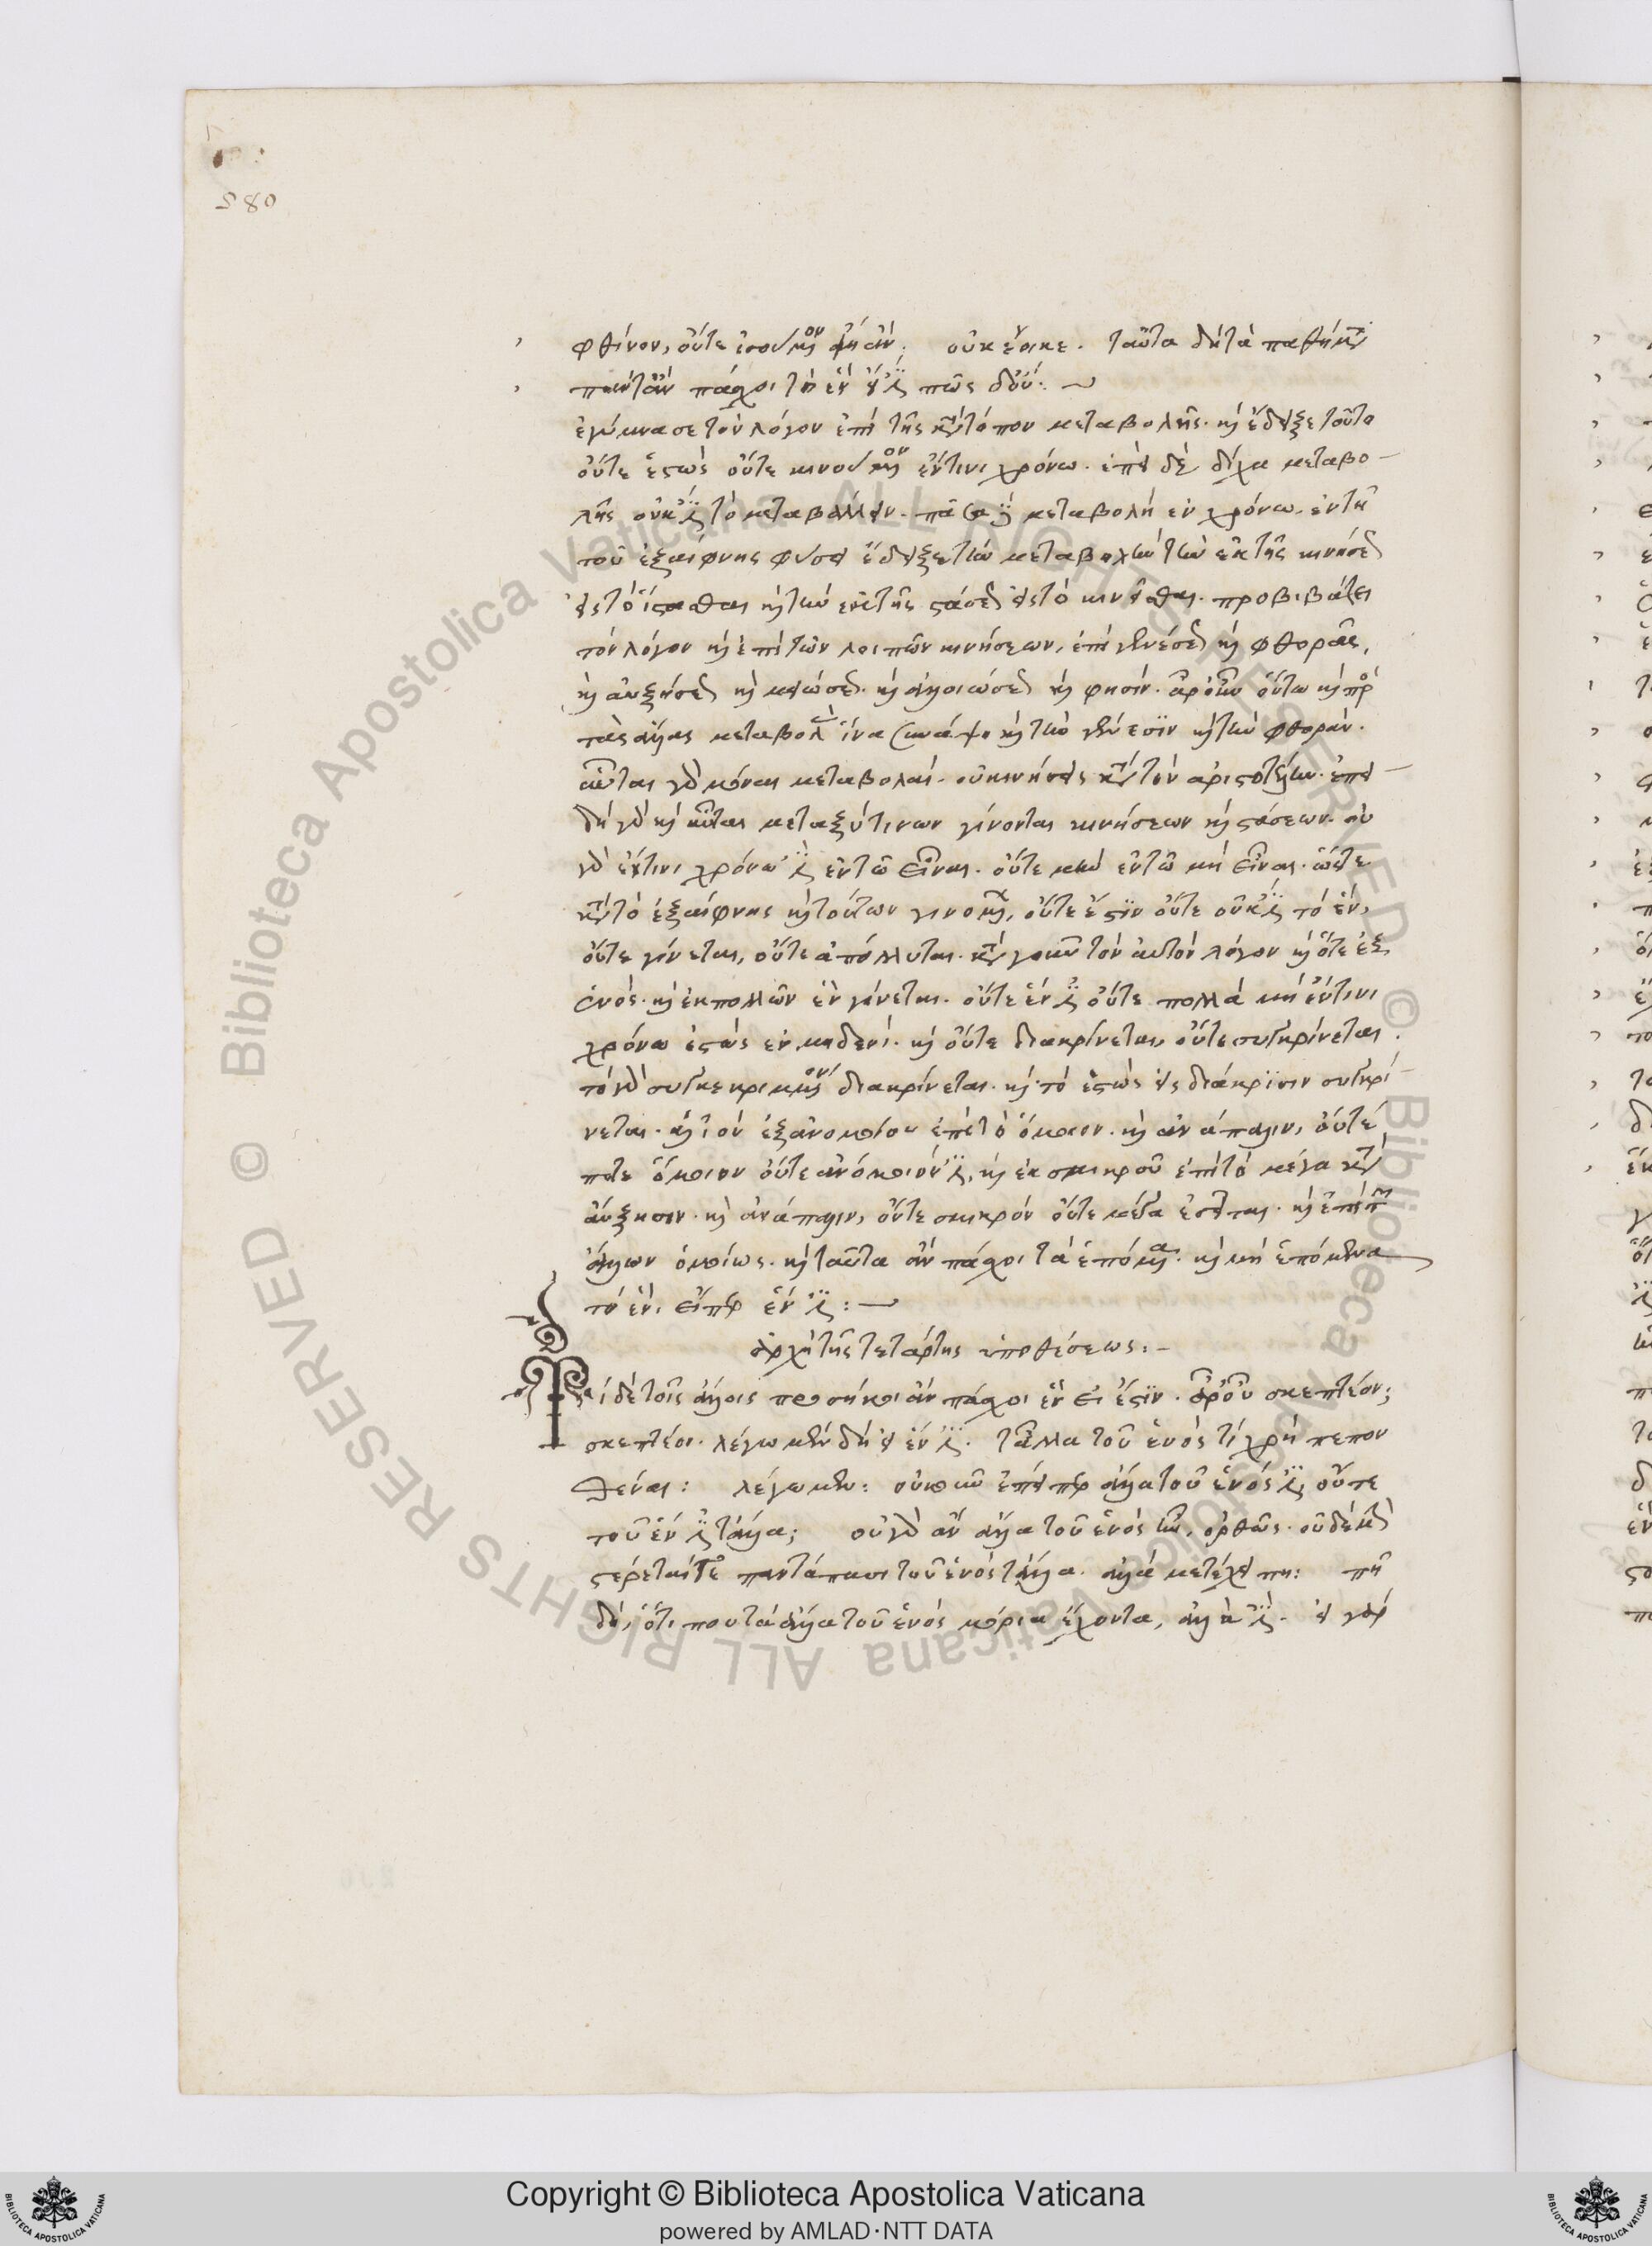 580
φθίνον, οὔτε ἰσούμενον εἴη ἄν; οὐκ ἔοικε. ταῦτα δὴ τὰ παθήματα
πάντ' ἂν πάσχοι τὸ ἓν εἰ ἔστι. πῶς δ' οὔ: ~
ἐγύμνασε τὸν λόγον ἐπὶ τῆς κατὰ τόπον μεταβολῆς. καὶ ἔδειξε τοῦτο
οὔτε ἑστὼς οὔτε κινούμενον ἔν τινι χρόνω. ἐπεὶ δὲ δίχα μεταβο-
λῆς οὐκ ἔστι τὸ μεταβάλλειν. πᾶσα δὲ μεταβολὴ ἐν χρόνω. ἐν τῆ
τοῦ ἐξαίφνης φύσει ἔδειξε τὴν μεταβολὴν τὴν ἐκ τῆς κινήσεως
εἰς τὸ ἵστασθαι καὶ τὴν ἐκ τῆς στάσεως εἰς τὸ κινεῖσθαι. προβιβάζει
τὸν λόγον καὶ ἐπὶ τῶν λοιπῶν κινήσεων, ἐπὶ γενέσεως καὶ φθορᾶς,
καὶ αὐξήσεως καὶ μειώσεως. καὶ ἀλλοιώσεως καὶ φησίν. ἆρ' οὖν οὕτω καὶ πρὸς
τὰς ἄλλας μεταβολὰς ἵνα συνάψη καὶ τὴν γένεσιν καὶ τὴν φθοράν.
αὗται γὰρ μόναι μεταβολαί. οὐ κινήσεις κατὰ τὸν ἀριστοτέλην. ἐπει-
δὴ γὰρ καὶ αὗται μεταξύ τινων γίνονται κινήσεων καὶ στάσεων. οὐ
γὰρ ἔν τινι χρόνω ἐστὶ ἐν τῶ εἶναι. οὔτε μὴν ἐν τῶ μὴ εἶναι. ὥστε
κατὰ τὸ ἐξαίφνης καὶ τούτων γινομένων, οὔτε ἔστιν οὔτε οὐκ ἔστι τὸ ἕν,
οὔτε γίνεται, οὔτε ἀπόλλυται. κατὰ γοῦν τὸν αὐτὸν λόγον καὶ ὅτε ἐξ
ἑνὸς. καὶ ἐκ πολλῶν ἓν γίνεται. οὔτε ἕν ἐστι οὔτε πολλὰ μὴ ἔν τινι
χρόνω ἑστὼς ἐν μηδενί. καὶ οὔτε διακρίνεται, οὔτε συγκρίνεται.
τὸ γὰρ συγκεκριμένον διακρίνεται. καὶ τὸ ἑστὼς εἰς διάκρισιν συγκρί-
νεται. καὶ ἰὸν ἐξ ἀνομοίου ἐπὶ τὸ ὅμοιον. καὶ ἀνάπαλιν, οὔτέ
ποτε ὅμοιον οὔτε ἀνόμοιόν ἐστι, καὶ ἐκ σμικροῦ ἐπὶ τὸ μέγα κατὰ
αὔξησιν. καὶ ἀνάπαλιν, οὔτε σμικρὸν οὔτε μέγα ἔσεται. καὶ ἐπὶ τῶν
ἄλλων ὁμοίως. καὶ ταῦτα ἂν πάσχοι τὰ ἑπόμενα. καὶ μὴ ἑπόμενα
τὸ ἕν, εἴπερ ἕν ἐστι: —
ἀρχὴ τῆς τετάρτης ὑποθέσεως: –
Τί δὲ τοῖς ἄλλοις προσήκοι ἂν πάσχειν ἓν εἰ ἔστιν. ἆρ' οὐ σκεπτέον;
σκεπτέον. λέγωμεν δὴ εἰ ἕν ἐστι. τἆλλα τοῦ ἑνὸς τί χρὴ πεπον
θέναι: λέγωμεν: οὐκοῦν ἐπείπερ ἄλλα τοῦ ἑνός ἐστι, οὔτε
τοῦ ἕν ἐστι τἄλλα; οὐ γὰρ ἂν ἄλλα τοῦ ἑνὸς ἦν, ὀρθῶς. οὐδὲ μὴν
στέρεταί γε παντάπασι τοῦ ἑνὸς τἄλλα. ἀλλὰ μετέχει πη: πῆ
δή; ὅτι που τὰ ἄλλα τοῦ ἑνὸς μόρια ἔχοντα, ἄλλά ἐστι. εἰ γὰρ
Copyright © Biblioteca Apostolica Vaticana
powered by AMLAD·NTT DATA